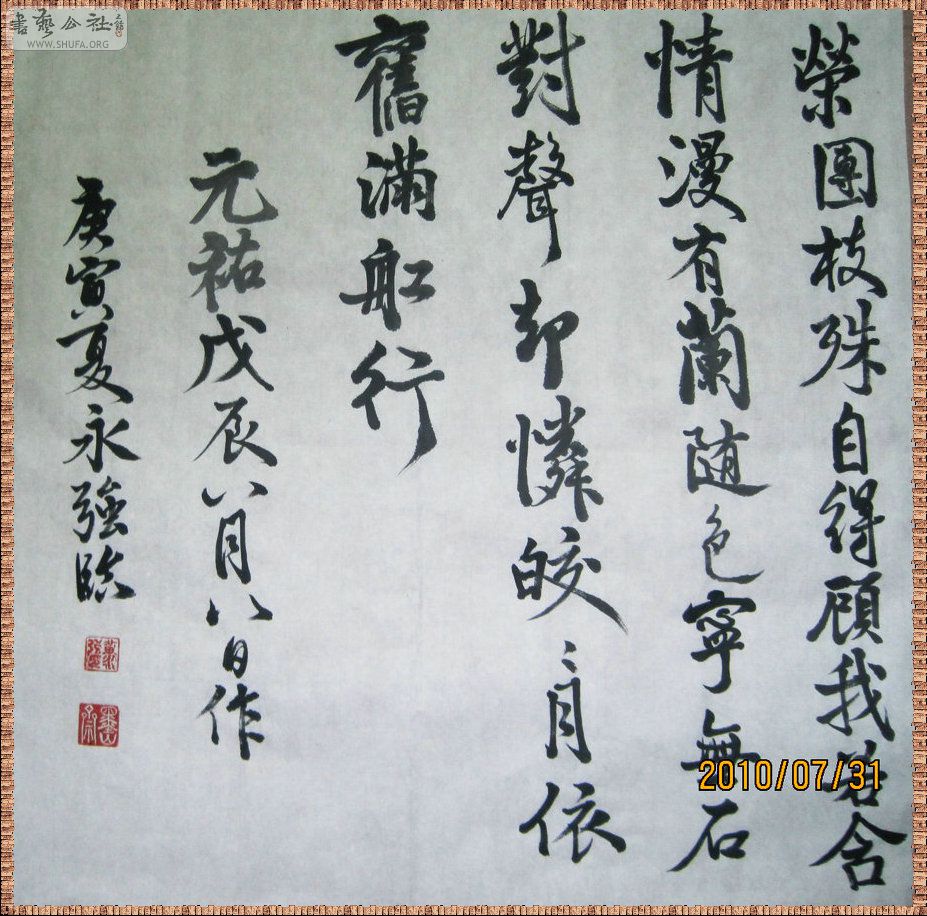 榮團枝殊自得顧我若含
情漫有蘭随色寧無石
對聲却憐皎〻月依
舊滿船行
元祐戊辰八月八日作
庚寅夏永強臨
書藝公社
WWW.SHUFA.ORG
2010/07/31